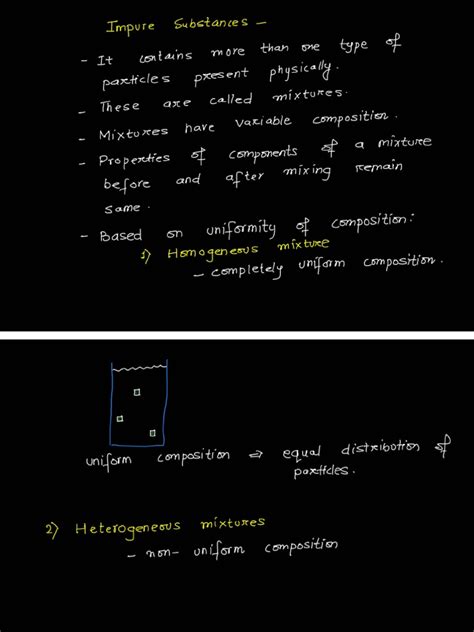 Impure Substances -
- It contains more than one type of
particles present physically.
- These are called mixtures.
- Mixtures have variable composition.
- Properties of components of a mixture
before and after mixing remain
same.
- Based on uniformity of composition:
1) Homogeneous mixture
- completely uniform composition.
uniform composition ⇒ equal distribution of
particles.
2) Heterogeneous mixtures
- non-uniform composition